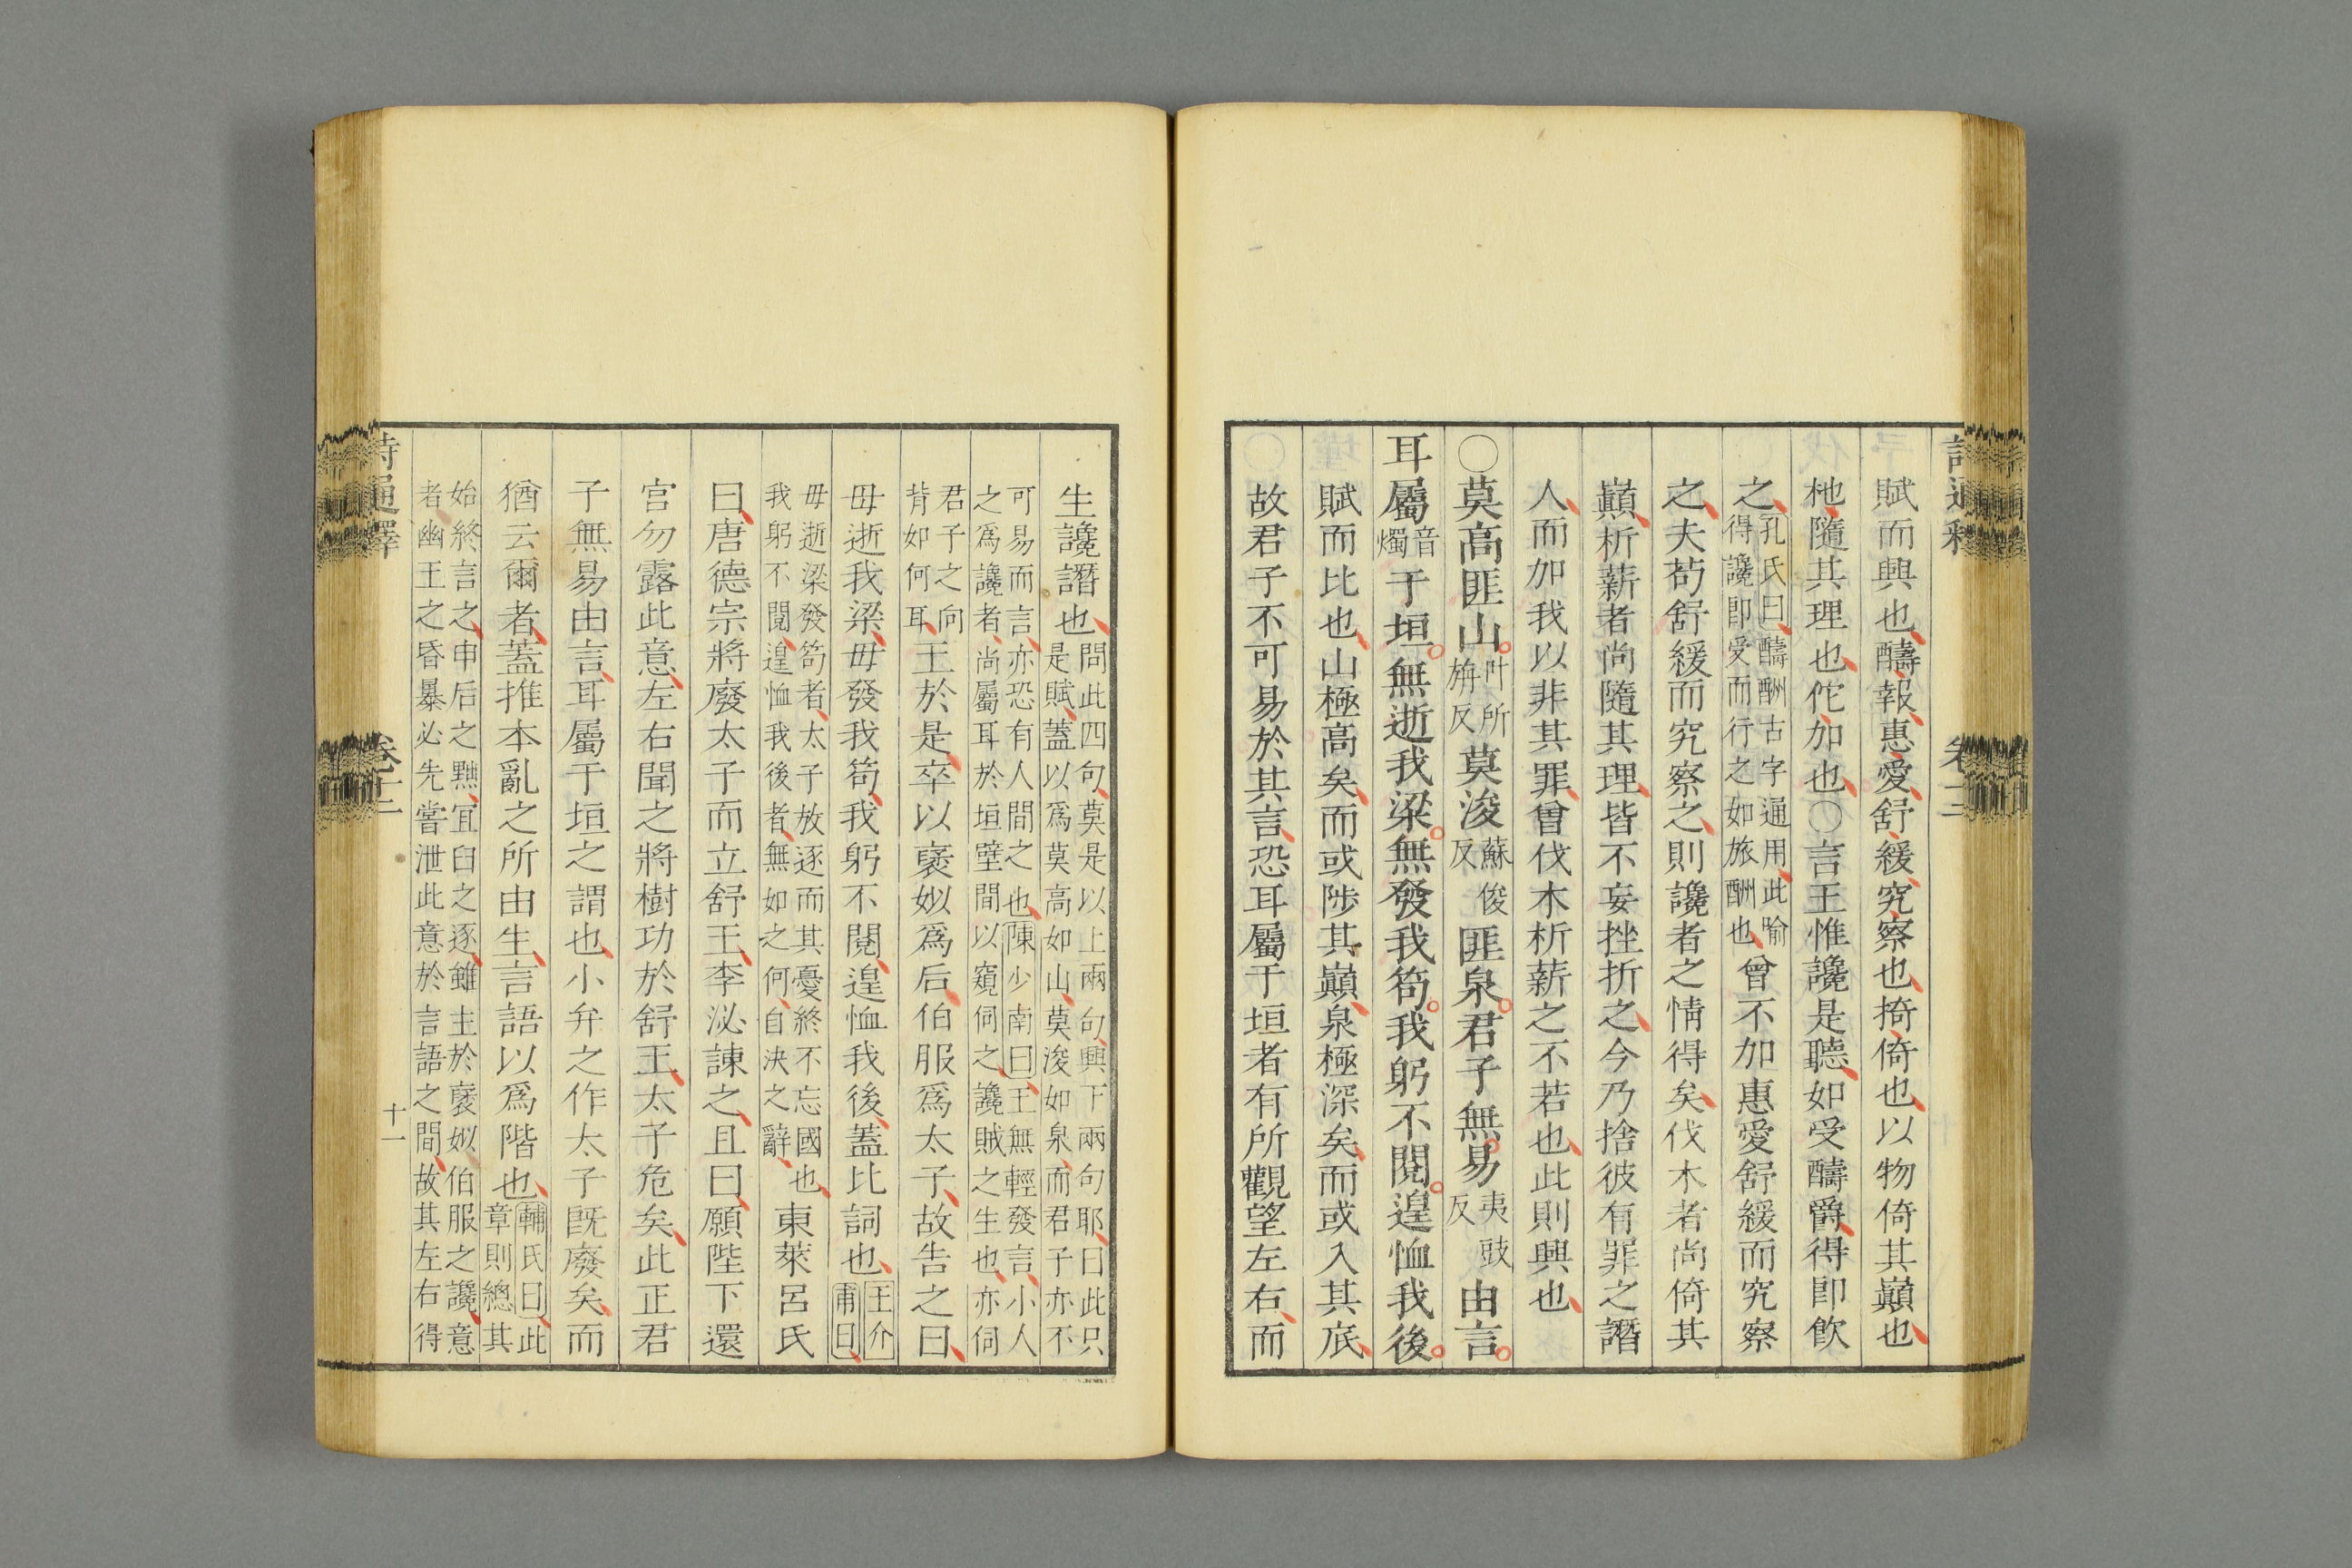 賦而興也醻報惠愛舒緩究察也掎倚也以物倚其巔也
杝隨其理也佗加也○言王惟讒是聽如受醻爵得即飲
之孔氏曰醻酬古字通用此喻得讒即受而行之如旅酬也曾不加惠愛舒緩而究察
之夫苟舒緩而究察之則讒者之情得矣伐木者尚倚其
巔析薪者尚隨其理皆不妄挫折之今乃捨彼有罪之譖
人而加我以非其罪曾伐木析薪之不若也此則興也
○莫高匪山叶所旃反莫浚蘇俊反匪泉君子無易夷豉反由言
耳屬音燭于垣無逝我梁無發我笱我躬不閱遑恤我後
賦而比也山極高矣而或陟其巔泉極深矣而或入其底
故君子不可易於其言恐耳屬于垣者有所觀望左右而
生讒譖也問此四句莫是以上兩句興下兩句耶曰此只是賦蓋以爲莫高如山莫浚如泉而君子亦不
可易而言亦恐有人聞之也陳少南曰王無輕發言小人之爲讒者尚屬耳於垣壁間以窺伺之讒賊之生也亦伺
君子之向背如何耳王於是卒以褒姒爲后伯服爲太子故告之曰
毋逝我梁毋發我笱我躬不閱遑恤我後蓋比詞也王介甫曰
毋逝梁發笱者太子放逐而其憂終不忘國也我躬不閱遑恤我後者無如之何自決之辭東萊呂氏
曰唐德宗將廢太子而立舒王李泌諫之且曰願陛下還
宮勿露此意左右聞之將樹功於舒王太子危矣此正君
子無易由言耳屬于垣之謂也小弁之作太子既廢矣而
猶云爾者蓋推本亂之所由生言語以爲階也輔氏曰此章則總其
始終言之申后之黜宜臼之逐雖主於褒姒伯服之讒意者幽王之昏暴必先嘗泄此意於言語之間故其左右得
詩通釋 卷十二 十一